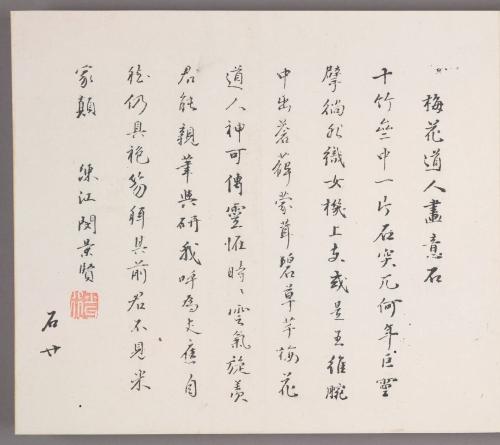 梅花道人畫意石
十竹齋中一片石突兀何年巨靈
擘徜非織女機上支或是王維腕
中出蒼蘚蒙茸碧草芊梅花
道人神可傳靈怪時〻雲氣旋羨
君能親筆與研我呼為丈應自
仍具袍笏拜其前君不見米
家顛　練江閔景賢
石廿